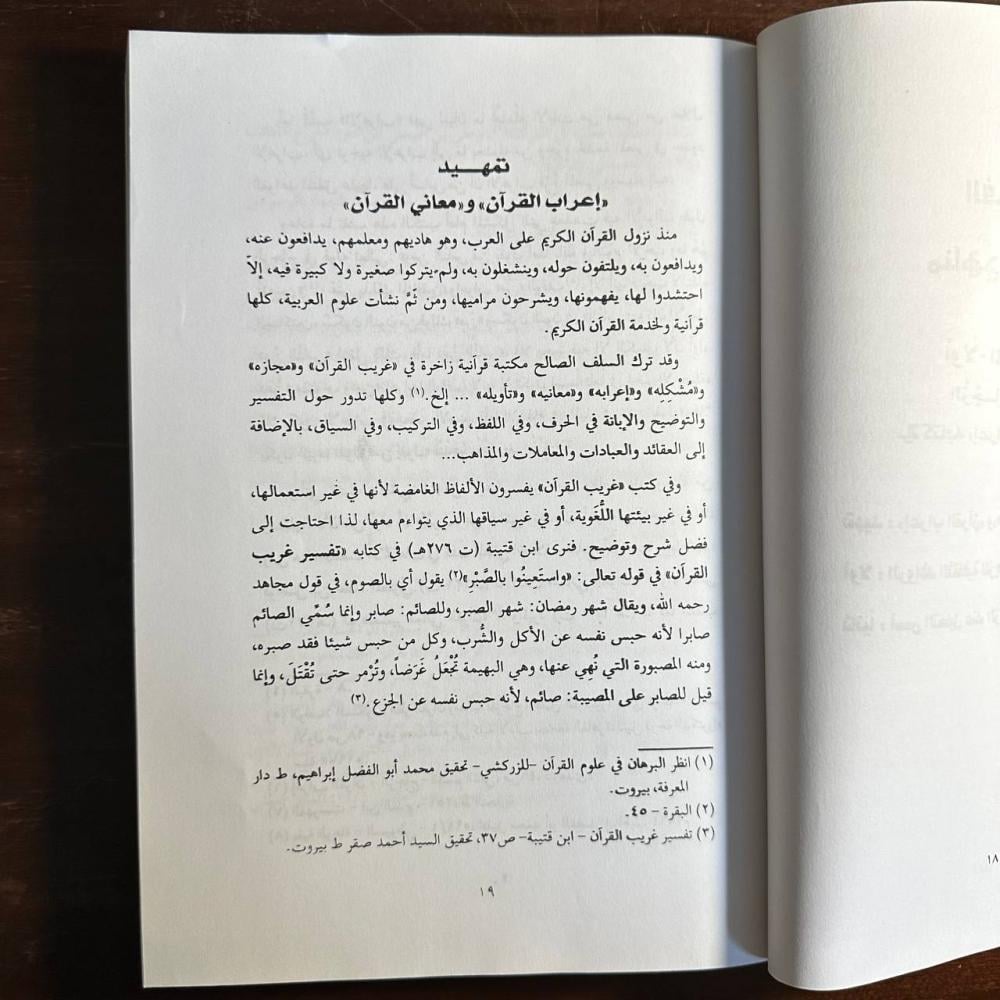 تمهـــيد
«إعراب القرآن» و«معاني القرآن»
منذ نزول القرآن الكريم على العرب، وهو هاديهم ومعلمهم، يدافعون عنه،
ويدافعون به، ويلتفون حوله، وينشغلون به، ولم يتركوا صغيرة ولا كبيرة فيه، إلاّ
احتشدوا لها، يفهمونها، ويشرحون مراميها، ومن ثَمَّ نشأت علوم العربية، كلها
قرآنية ولخدمة القرآن الكريم.
وقد ترك السلف الصالح مكتبة قرآنية زاخرة في «غريب القرآن» و«مجازه»
و«مُشْكِلِه» و«إعرابه» و«معانيه» و«تأويله» ... إلخ.(١) وكلها تدور حول التفسير
والتوضيح والإبانة في الحرف، وفي اللفظ، وفي التركيب، وفي السياق، بالإضافة
إلى العقائد والعبادات والمعاملات والمذاهب...
وفي كتب «غريب القرآن» يفسرون الألفاظ الغامضة لأنها في غير استعمالها،
أو في غير بيئتها اللُّغَوية، أو في غير سياقها الذي يتواءم معها، لذا احتاجت إلى
فضل شرح وتوضيح. فنرى ابن قتيبة (ت ٢٧٦هـ) في كتابه «تفسير غريب
القرآن» في قوله تعالى: «واستَعِينُوا بالصَّبْرِ»(٢) يقول أي بالصوم، في قول مجاهد
رحمه الله، ويقال شهر رمضان: شهر الصبر، وللصائم: صابر وإنما سُمِّي الصائم
صابرا لأنه حبس نفسه عن الأكل والشُّرب، وكل من حبس شيئا فقد صبره،
ومنه المصبورة التي نُهِي عنها، وهي البهيمة تُجْعَلُ غَرَضاً، وتُرْمر حتى تُقْتَلَ، وإنما
قيل للصابر على المصيبة: صائم، لأنه حبس نفسه عن الجزع.(٣)
(١) انظر البرهان في علوم القرآن -للزركشي- تحقيق محمد أبو الفضل إبراهيم، ط دار
المعرفة، بيروت.
(٢) البقرة - ٤٥.
(٣) تفسير غريب القرآن - ابن قتيبة- ص٣٧، تحقيق السيد أحمد صقر ط بيروت.
١٩
١٨